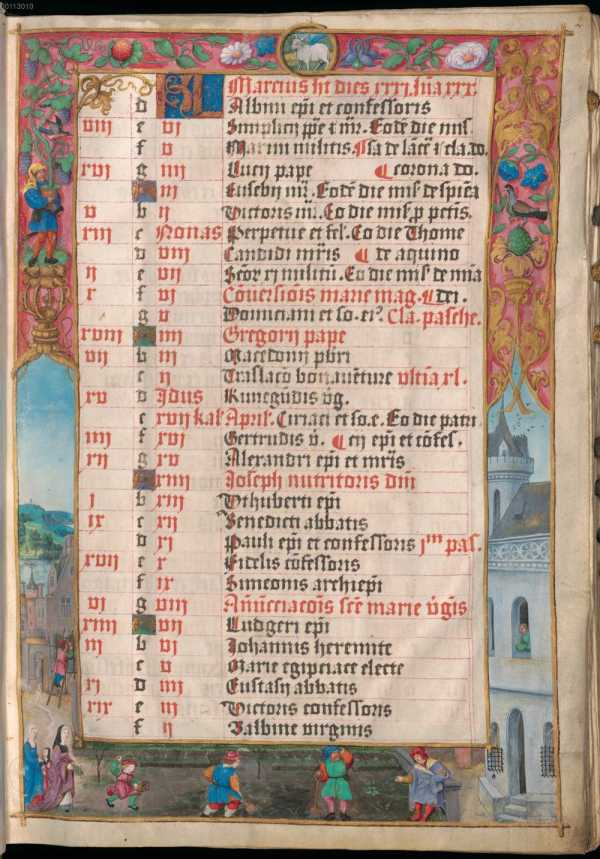 00113019
Marcius ht dies xxxi. lūa xxx.
d Albini ep̄i et confessoris
viii e vi Simplicij p̄pe ⁊ m̄r. Eodē die mis̄
f v Marini militis. ¶sa de lācē ⁊ cla.do.
xvi g iiii Lucij pape ¶corona do.
iii Eusebij m̄r. Eodē die mis̄ de spīea
v b ii Victoris m̄. Eo die mis̄ p pctīs.
xiii c Nonas Perpetue et fel̄. Eo die Thome
d viii Candidi m̄ris ¶ de aquino
ii e vii
x f vi Cōuersiōis marie mag. ¶dei.
g v et so. Cla. pasche.
xviii iiii Gregorij pape
vii b iii Macedonij pb̄ri
c ii Traslacō bonauēture vltīa xl.
xv d Idus Kunegūdis v̄g.
e xvii kal̄ April̄. Ciriaci et so.e. Eo die patri
iiii f xvi Gertrudis v̄. ¶cij ep̄i et cōfes̄.
xii g xv Alexandri ep̄i et m̄ris
xiiii Joseph nutritoris dn̄i
i b xiii Cthuberti ep̄i
ix c xii Benedicti abbatis
d xi Pauli ep̄i et confessoris jᵐ pas.
xvii e x Fidelis cōfessoris
f ix Simeonis archiep̄i
vi g viii Anūcciacōis scē marie v̄gīs
xiiii vii Ludgeri ep̄i
iii b vi Johannis heremite
c v Marie egipciace electe
xi d iiii Eustasij abbatis
xix e iii Victoris confessoris
f ii Balbine virginis